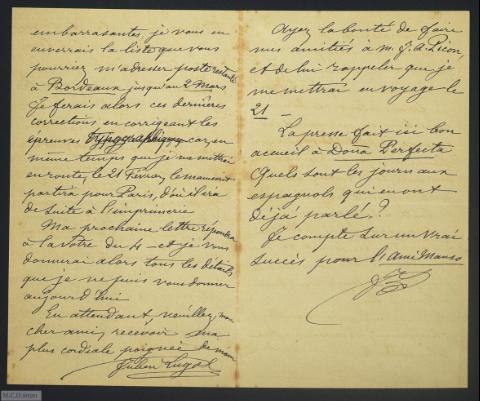 embarrasantes, je vous en
enverrais la liste que vous
pourriez m'adresser poste restante
à Bordeaux jusqu'au 2 Mars
Je ferais alors ces dernières
corrections en corrigeant les
épreuves typographiques car, en
même temps que je me mettrai
en route, le 21 Février, le manuscrit
partira pour Paris, d'où il ira
de suite à l'imprimerie
Ma prochaine lettre répondra
à la votre du 4 – et je vous
donnerai alors tous les détails
que je ne puis vous donner
aujourd'hui
En attendant, veuillez, mon
cher ami, recevoir ma
plus cordiale poignée de main
Julien Lugol
Ayez la bonté de faire
mes amitiés à M. J. O. Picón
et de lui rappeler que je
me mettrai en voyage le
21 –
La presse fait ici bon
accueil à Doña Perfecta
Quels sont les journaux
espagnols qui en ont
déjà parlé?
Je compte sur un vrai
succès pour l'Ami Manso